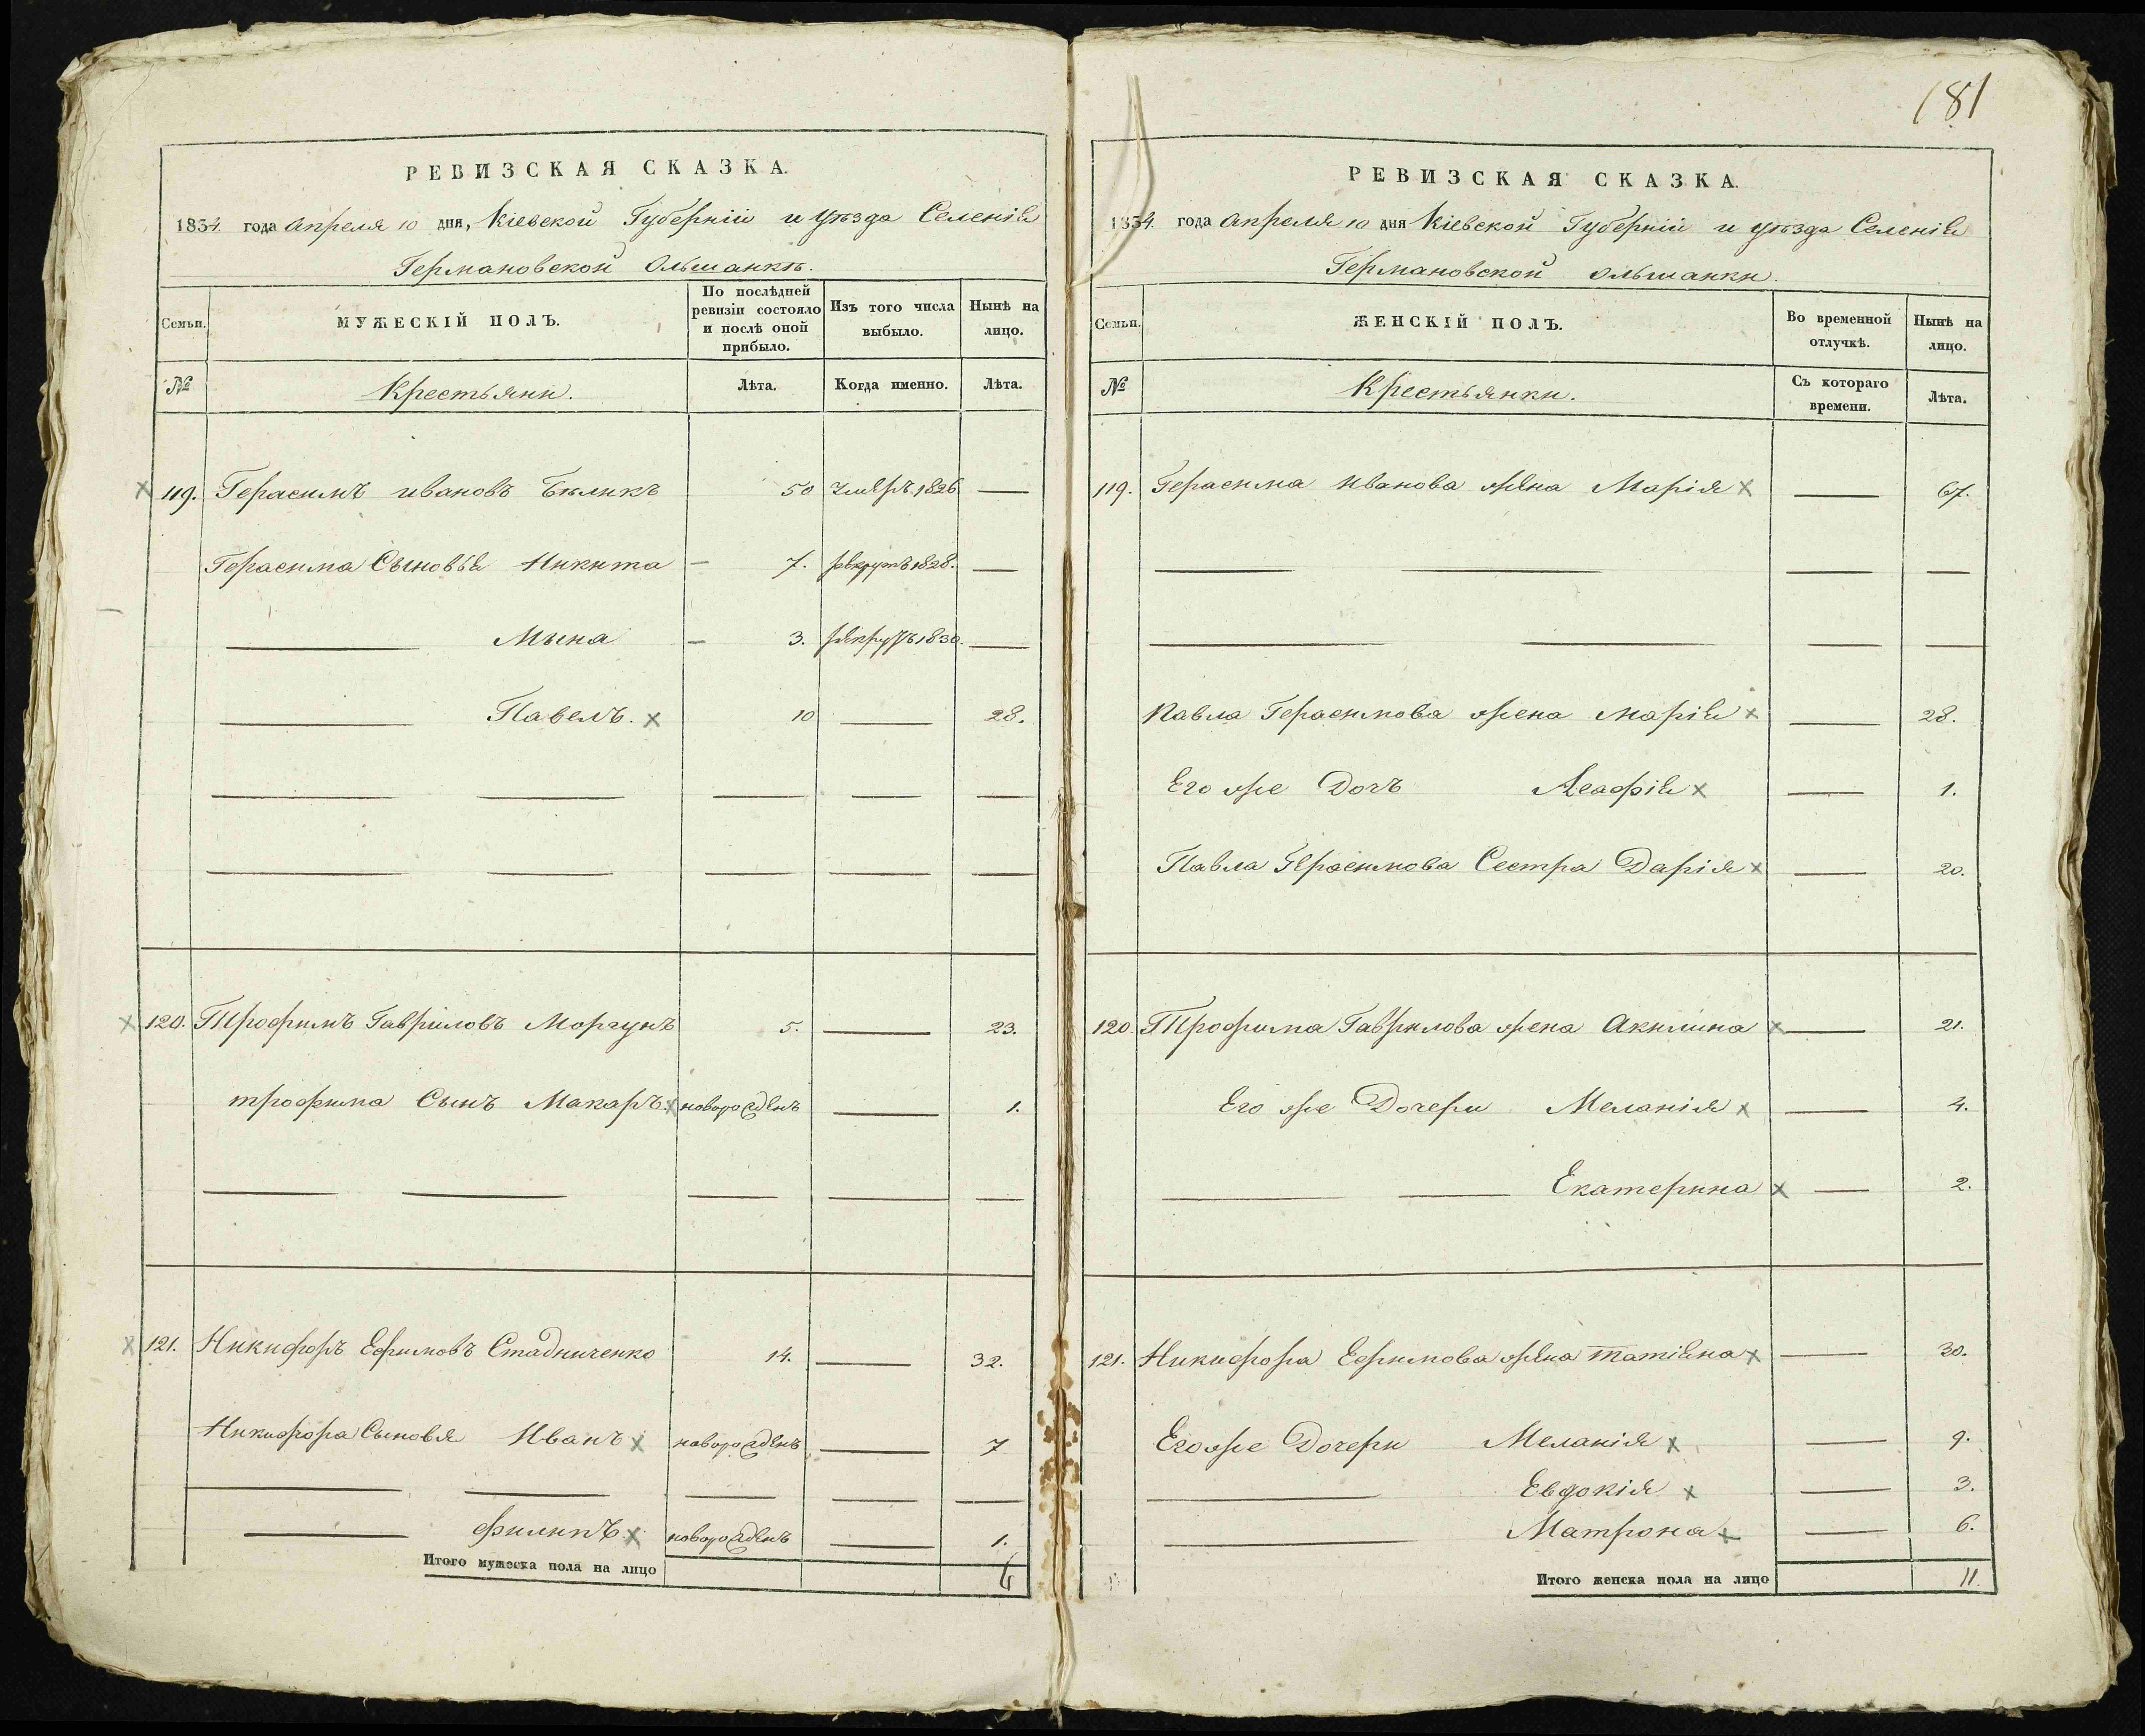 181
РЕВИЗСКАЯ СКАЗКА.
1834 года Апреля 10 дня, Кіевской Губерніи и уѣзда Селенія
Германовской Ольшанкѣ.
Семьи.
МУЖЕСКІЙ ПОЛЪ.
По послѣдней ревизіи состояло и послѣ оной прибыло.
Изъ того числа выбыло.
Нынѣ на лицо.
№
Крестьяни.
Лѣта.
Когда именно.
Лѣта.
119. Герасимъ Ивановъ Бѣликъ 50 умеръ 1826 —
Герасима Сыновья Никита — 7. рекрутъ 1828. —
— Мына — 3. рекрутъ 1830. —
— Павелъ. x 10 — 28.
120. Трофимъ Гавриловъ Моргунъ 5. — 23.
трофима Сынъ Макаръ x новорожденъ — 1.
121. Никифоръ Ефимовъ Стадниченко 14. — 32.
Никифора Сыновя Иванъ x новорожденъ — 7
— филипъ x новорожденъ — 1.
Итого мужеска пола на лицо 6
РЕВИЗСКАЯ СКАЗКА.
1834 года Апреля 10 дня Кіевской Губерніи и уѣзда Селенія
Германовской Ольшанки
Семьи.
ЖЕНСКІЙ ПОЛЪ.
Во временной отлучкѣ.
Нынѣ на лицо.
№
Крестьянки.
Съ котораго времени.
Лѣта.
119. Герасима Иванова жена Марія x — 67.
Павла Герасимова жена Марія x — 28.
Его же Дочь Агафія x — 1.
Павла Герасимова Сестра Дарія x — 20.
120. Трофима Гаврилова жена Акилина x — 21.
Его же Дочери Меланія x — 4.
— Екатерина x — 2.
121. Никифора Ефимова жена татіяна x — 30.
Его же Дочери Меланія x — 9.
— Евдокія x — 3.
— Матрона x — 6.
Итого женска пола на лицо 11.